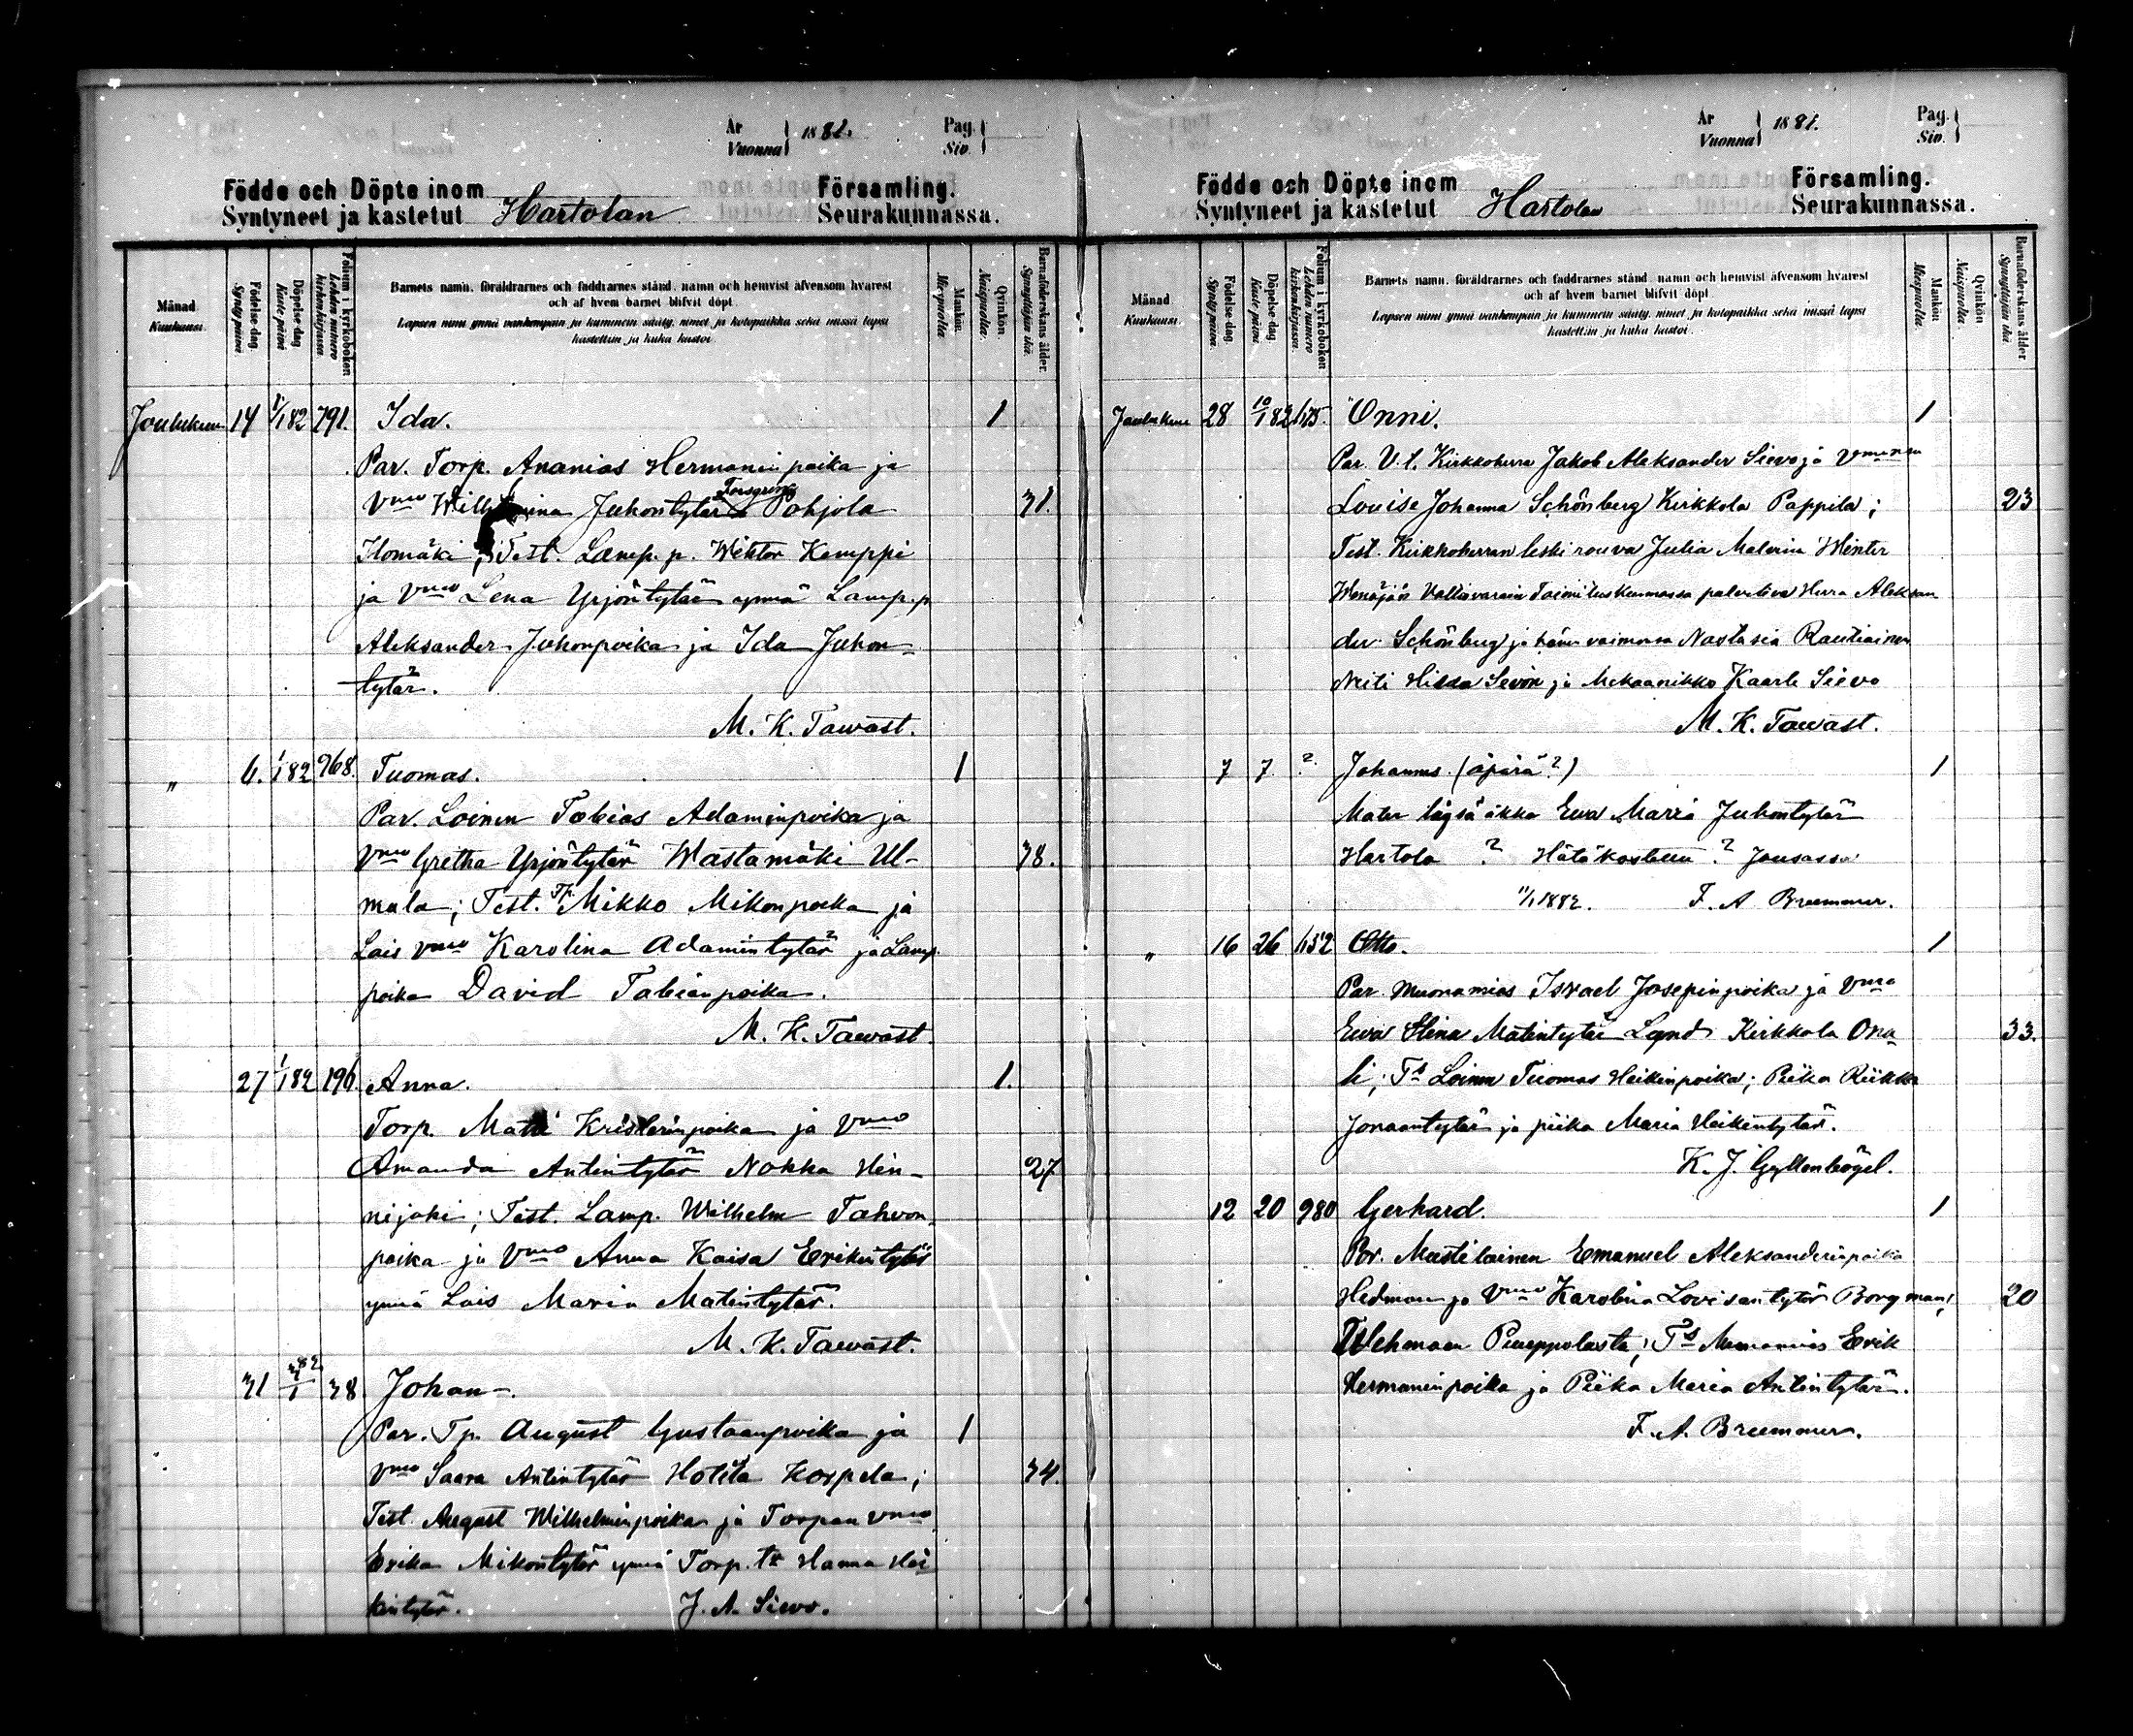 År
Vuonna } 1881.
Pag.
Siv.
Födde och Döpte inom
Syntyneet ja kastetut Hartolan
Församling.
Seurakunnassa.
Månad
Kuukausi.
Födelse dag
Synty päivä
Döpelse dag
Kaste päivä
Folium i kyrkoboken
Lehden numero kirkonkirjassa
Barnets namn, föräldrarnes och faddrarnes stånd, namn och hemvist äfvensom hvarest
och af hvem barnet blifvit döpt.
Lapsen nimi ynnä vanhempain ja kummein sääty, nimet ja kotopaikka sekä missä lapsi
kastettiin ja kuka kastoi.
Mankön.
Miespuolta
Qvinkön.
Naispuolta.
Barnaföderskans ålder.
Synnyttäjän ikä.
Joulukuu 14 1/1 82 791. Ida. 1
Par. Torp. Ananias Hermanin poika ja
Forsgren
Vmo Wilhelmina Juhontytär Pohjola 31.
Ilomäki; Test. Lamp. p. Wiktor Kemppi
ja Vmo Lena Yrjöntytär ynnä Lamp. p
Aleksander Juhonpoika ja Ida Juhon-
tytär.
M. K. Tawast.
" 6. 1/1 82 968. Tuomas. 1
Par. Loinen Tobias Adaminpoika ja
Vmo Gretha Yrjöntytär Wastamäki Ul- 38.
mala; Test. Tp. Mikko Mikonpoika ja
Lois vmo Karolina Adamintytär ja Lamp.
poika David Tobianpoika.
M. K. Tawast.
27 1/1 82 196. Anna. 1.
Torp. Matti Kristerinpoika ja Vmo
Amanda Antintytär Nokka Hin- 27
nijoki; Test. Lamp. Wilhelm Tahvon
poika ja Vmo Anna Kaisa Erikintytär
ynnä Lois Maria Matintytär.
M. K. Tawast.
31 38 Johan.
Par. Tp. August Gustaanpoika ja 1
Vmo Saara Antintytär Hotila Korpela; 34.
Test. August Wilhelminpoika ja Torpan vmo
Erika Mikontytär ynnä Torp. tr Hanna Hei
kintytär. J. A. Sievo.
År
Vuonna } 1881.
Pag.
Siv.
Födde och Döpte inom
Syntyneet ja kastetut Hartolan
Församling.
Seurakunnassa.
Månad
Kuukausi.
Födelse dag
Synty päivä.
Döpelse dag
Kaste päivä
Folium i kyrkoboken
Lehden numero kirkonkirjassa.
Barnets namn, föräldrarnes och faddrarnes stånd, namn och hemvist äfvensom hvarest
och af hvem barnet blifvit döpt.
Lapsen nimi ynnä vanhempain ja kummein sääty, nimet ja kotopaikka sekä missä lapsi
kastettiin ja kuka kastoi.
Mankön
Miespuolta.
Qvinkön
Naispuolta.
Barnaföderskans ålder
Synnyttäjän ikä.
Joulukuu 28 10/1 82 Onni. 1
Par. V. t. Kirkkoherra Jakob Aleksander Sievo ja Vmonsa
Louise Johanna Schönberg Kirkkola Pappila; 23
Test. Kirkkoherran leski rouva Julia Winter
Wenäjän Valtiovarain Toimituskunnassa palveleva Herra Aleksan
der Schönberg ja hänen vaimonsa Nastasia Rautiainen
Neiti Hilda Sevón ja Mekaanikko Kaarle Sievo
M. K. Tawast.
7 7 ? Johannes. (äpärä?) 1
Mater akka Ewa Maria Juhontytär
Hartola ? Hätäkastettu ? Jousassa
11/1 1882. F. A. Breemmer.
" 16 26 1152 Otto. 1
Par. Muonamies Israel Josepinpoika ja Vmo
Ewa Stina Matintytär Lgnd Kirkkola Ona 33.
li; Ts Loinen Tuomas Heikinpoika; Piika Riikka
Jonaantytär ja piika Maria Heikintytär.
K. J. Gyllenbögel.
12 20 980 Gerhard. 1
Par. Mustilainen Emanuel Aleksanderinpoika
Hedman ja Vmo Karolina Lovisantytär Borgman, 20
Puuppolasta; Ts Muonamies Erik
Hermaninpoika ja Piika Maria Antintytär.
F. A. Breemmer.